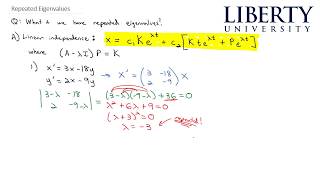 Repeated Eigenvalues
LIBERTY
UNIVERSITY
Q: What if we have repeated eigenvalues?
A: Linear independence: x = c₁Ke^λt + c₂[Kte^λt + Pe^λt]
where (A-λI)P = K
1) x' = 3x-18y → X' = (3 -18 2 -9) X
y' = 2x-9y
|3-λ -18 2 -9-λ| = (3-λ)(-9-λ)+36=0
λ²+6λ+9=0
(λ+3)²=0
λ=-3 repeated!